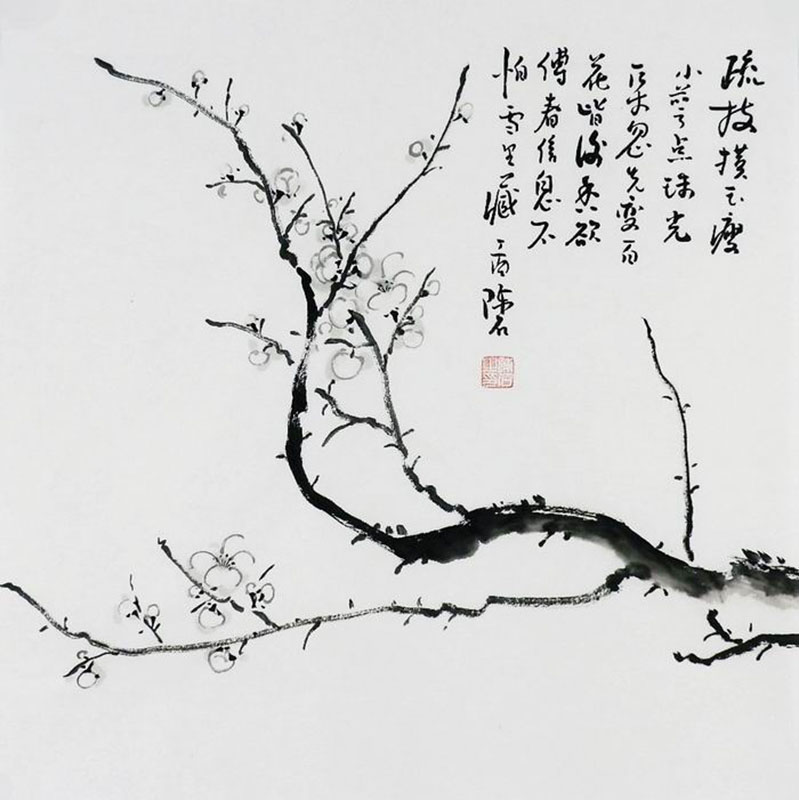 疏枝横玉瘦
小萼点珠光
一朵忽先变百
花皆後香欲
傳春信息不
怕雪里藏 陈